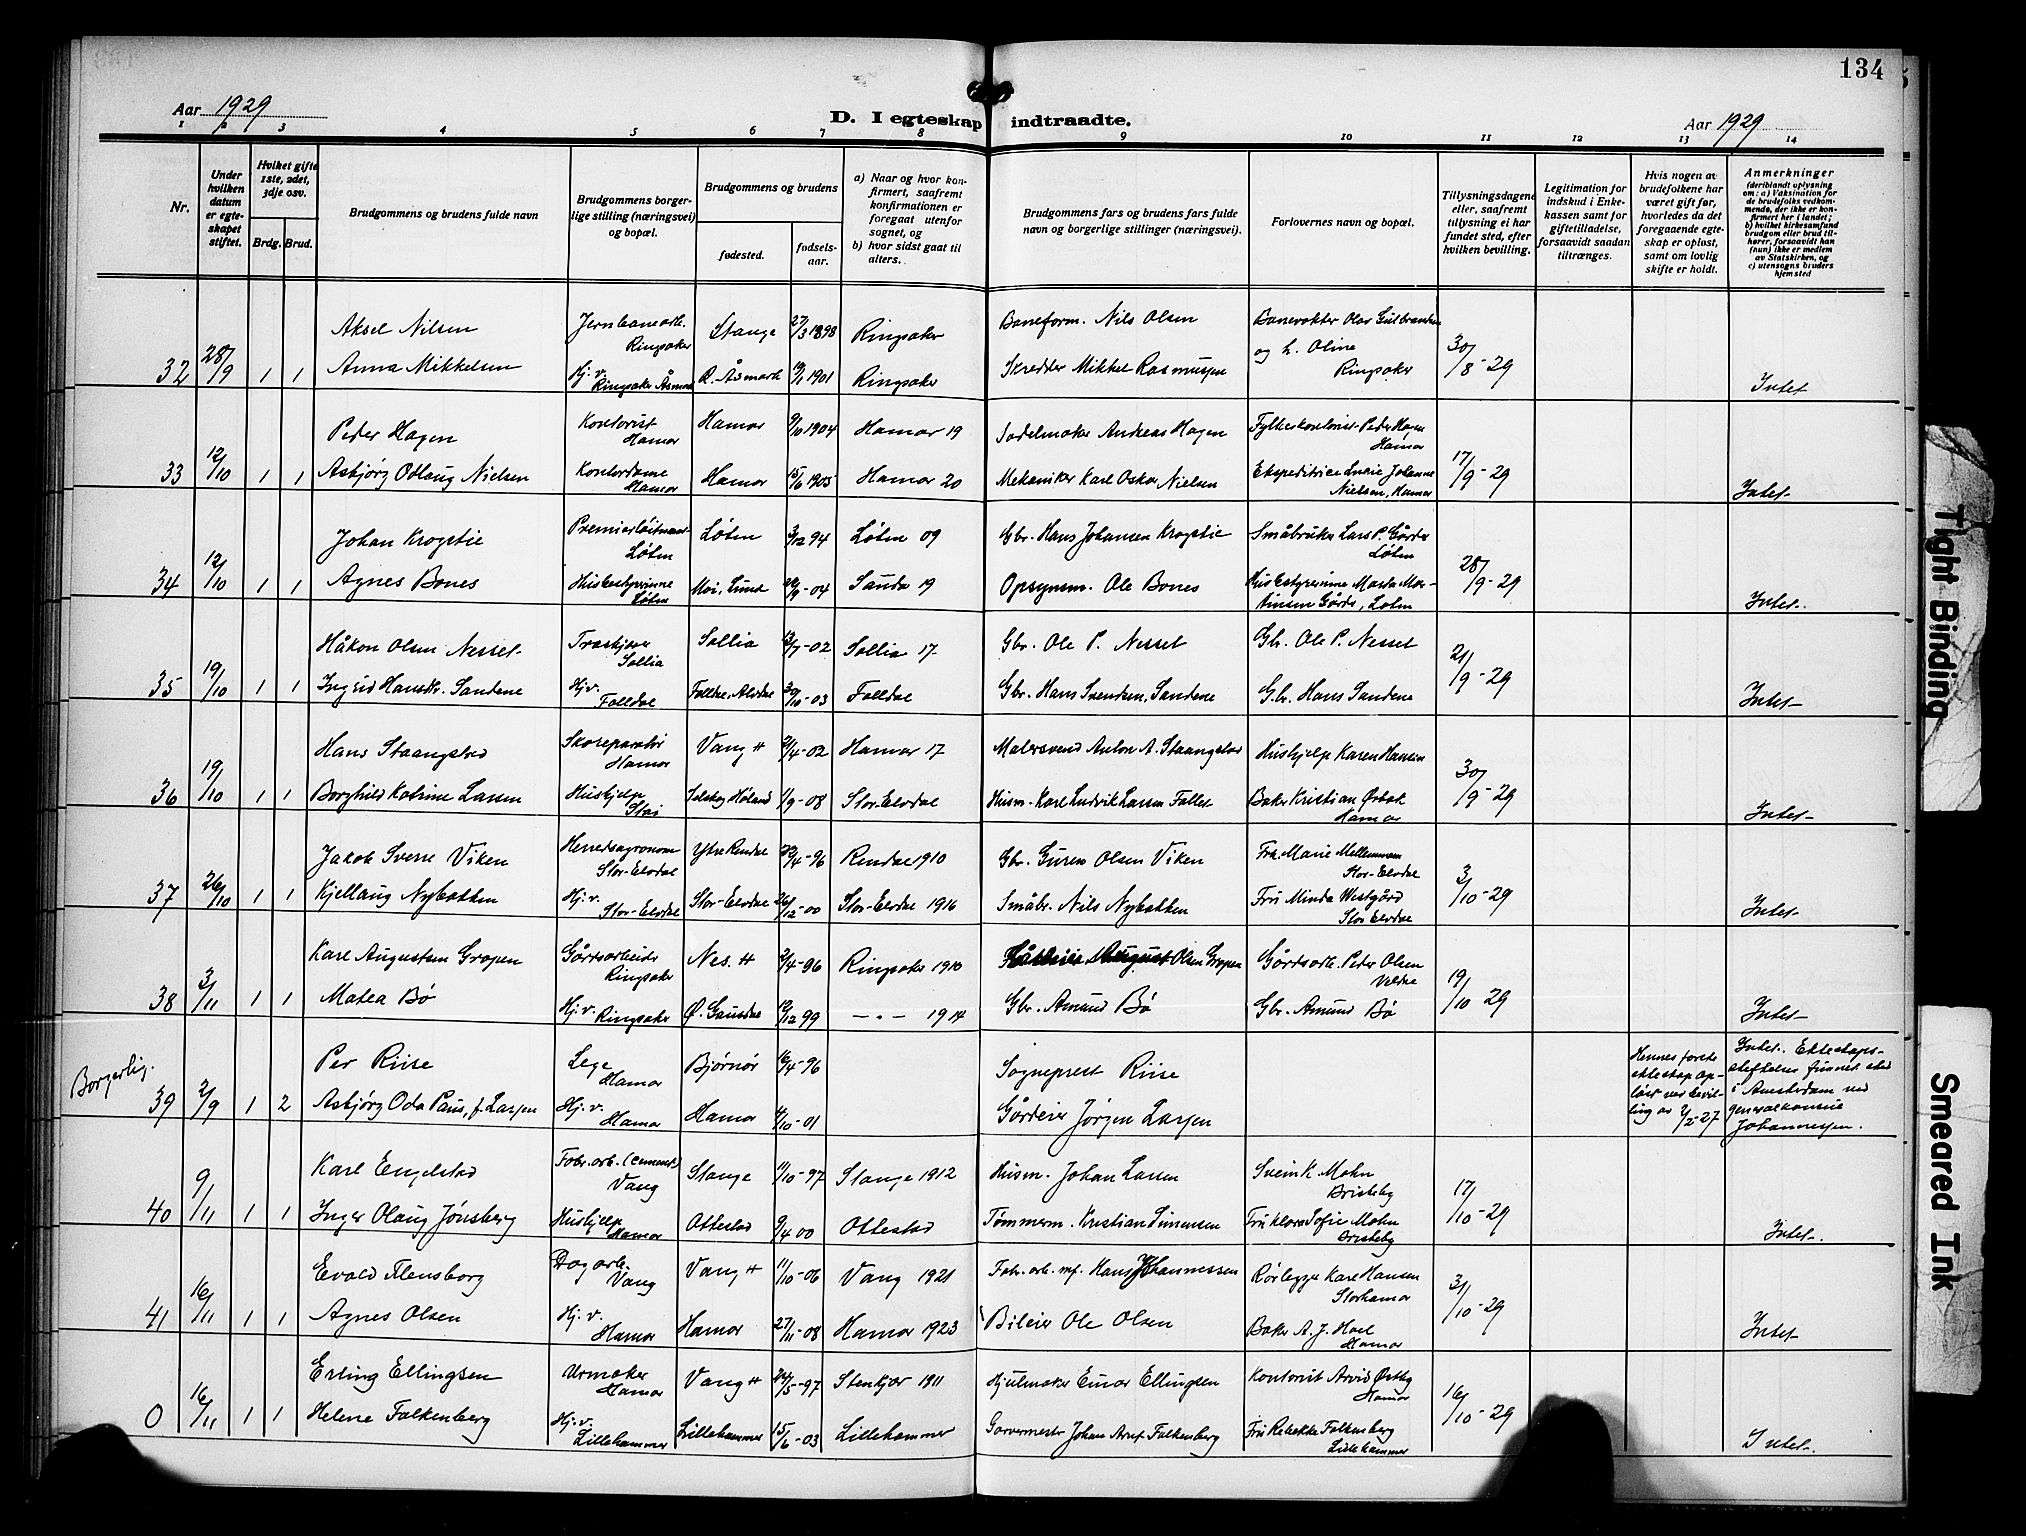 134
Aar 1929
D. I egteskap indtraadte.
Aar 1929
1 2 3 4 5 6 7 8 9 10 11 12 13 14
Nr.
Under hvilken datum er egteskapet stiftet.
Hvilket gifte 1ste, 2det, 3dje osv.
Brdg. Brud.
Brudgommens og brudens fulde navn
Brudgommens borgerlige stilling (næringsvei) og bopæl.
Brudgommens og brudens
fødested.
fødselsaar.
a) Naar og hvor konfirmert, saafremt konfirmationen er foregaat utenfor sognet, og
b) hvor sidst gaat til alters.
Brudgommens fars og brudens fars fulde navn og borgerlige stillinger (næringsvei).
Forlovernes navn og bopæl.
Tillysningsdagene eller, saafremt tillysning ei har fundet sted, efter hvilken bevilling.
Legitimation for indskud i Enkekassen samt for giftetilladelse, forsaavidt saadan tiltrænges.
Hvis nogen av brudefolkene har været gift før, hvorledes da det foregaaende egteskap er opløst, samt om lovlig skifte er holdt.
Anmerkninger
(deriblandt oplysning om: a) Vaksination for de brudefolks vedkommende, der ikke er konfirmert her i landet; b) hvilket kirkesamfund brudgom eller brud tilhører, forsaavidt han (hun) ikke er medlem av Statskirken, og c) utensogns bruders hjemsted
Aksel Nilsen Jernbanearb. Ringsaker Stange 27/3 1898 Ringsaker Baneform. Nils Olsen Banevokter Olav Gulbrandsen
32 28/9 1 1 Anna Mikkelsen Hj.v. Ringsaker Åsmark R. Åsmark 1901 Ringsaker Skredder Mikkel Rasmussen og h. Oline Ringsaker 30/8-29 Intet
Peder Hagen Kontorist Hamar Hamar 9/10 1904 Hamar 19 Sadelmaker Andreas Hagen Peder Hagen Hamar
33 12/10 1 1 Asbjørg Odlaug Nielsen Kontordame Hamar Hamar 15/6 1905 Hamar 20 Mekaniker Karl Oskar Nielsen Ekspeditrice Lucie Johanne Nielsen, Hamar 17/9-29 Intet
Johan Krogstie Premierløitnant Løten Løten 3/12 94 Løten 09 Gbr. Hans Johansen Krogstie Småbruker Lars P. Gårder Løten
34 12/10 1 1 Agnes Bones Husbestyrerinne Løten Moi, Lund -04 Sauda 19 Opsynsm. Ole Bones Husbestyrerinne Marta Martinsen Gårder, Løten 28/9-29 Intet.
Håkon Olsen Nesset Sollia Sollia -02 Sollia 17 Gbr. Ole P. Nesset Gbr. Ole P. Nesset
35 19/10 1 1 Ingrid Hansdtr. Sandene Hj.v. Folldal Folldal, Alvdal 03 Folldal Gbr. Hans Svendsen, Sandene Gbr. Hans Sandene 21/9-29 Intet
Hans Staangstad Skoreparatør Hamar Vang H -02 Hamar 17 Malersvend Anton A. Staangstad Hushjelp Karen Hansen
36 19/10 1 1 Borghild Katrine Larsen Hushjelp Stai Setskog Høland 1/9-08 Stor-Elvdal Husm. Karl Ludvik Larsen Fallet Baker Kristian Ørbæk Hamar 30/9-29 Intet
Jakob Sverre Viken Herredsagronom Stor-Elvdal Ytre Rendal -96 Rendal 1910 Gbr. Guren Olsen Viken Frk. Marie Mellemmoen Stor-Elvdal
37 26/10 1 1 Kjellaug Nybakken Hj.v. Stor-Elvdal Stor-Elvdal 26/12-00 Stor-Elvdal 1916 Småbr. Nils Nybakken Fru Minda Westgård Stor Elvdal 3/10-29 Intet
Karl Augustsen Gropen Gårdsarbeider Ringsaker Nes. H -96 Ringsaker 1910 August Olsen Gropen Gårdsarb. Peder Olsen Veldre
38 3/11 1 1 Matea Bø Hj.v. Ringsaker Ø. Gausdal 99 -"- 1914 Gbr. Amund Bø Gbr. Amund Bø 19/10 29 Intet
Borgerlig.
Per Riise Lege Hamar Bjørnør 16/4-96 Sogneprest Riise
39 2/9 1 2 Asbjørg Oda Paus, f. Larsen Hj.v. Hamar Hamar /10-01 Gårdeier Jørgen Larsen
Hennes første ekteskap opløst ved bevilling av 1/2-27
Intet. Ekteskapsstiftelsen funnet sted i Amsterdam ved generalkonsul Johannessen.
Karl Engelstad Fabr.arb. (cement) Vang Stange 11/10-97 Stange 1912 Husm. Johan Larsen Svein K. Mohn Briskeby
40 9/11 1 1 Inger Olaug Jønsberg Hushjelp Hamar Ottestad 9/4 00 Ottestad Tømmerm. Kristian Simensen Fru Klara Sofie Mohn Briskeby 17/10-29 Intet.
Evald Flensborg Dagarb. Vang Vang H 11/10-06 Vang 1921 Fabr.arb. mf. Hans Johannessen Rørlegger Karl Hansen Storhamar
41 16/11 1 1 Agnes Olsen Hj.v. Hamar Hamar 27/11-08 Hamar 1923 Bileier Ole Olsen Baker A. J. Hoel Hamar 31/10-29 Intet
Erling Ellingsen Urmaker Hamar Vang H -97 Stenkjær 1911 Hjulmaker Einar Ellingsen Kontorist Arvid Østby Hamar
0 16/11 1 1 Helene Falkenberg Hj.v. Lillehammer Lillehammer 15/6-03 Lillehammer Garvermester Johan Arnt Falkenberg Fru Rebekka Falkenberg Lillehammer 16/10-29 Intet.
Tight Binding
Smeared Ink